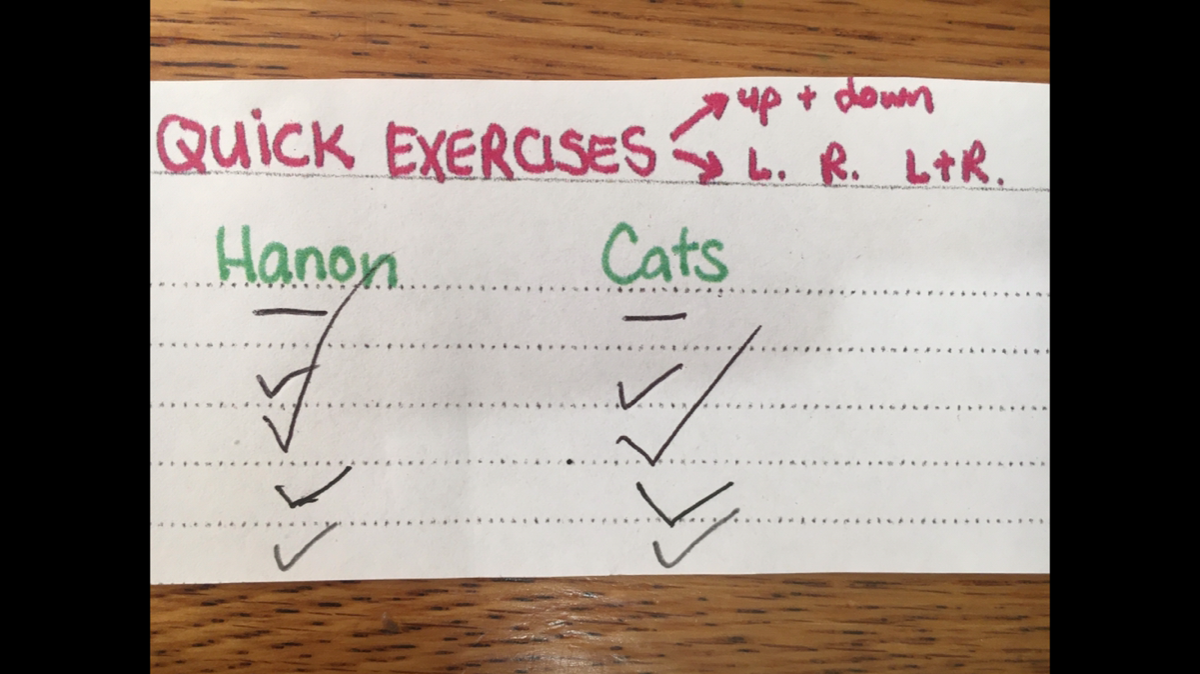 QUiCK EXERCISES up + down
L. R. L+R.
Hanon Cats